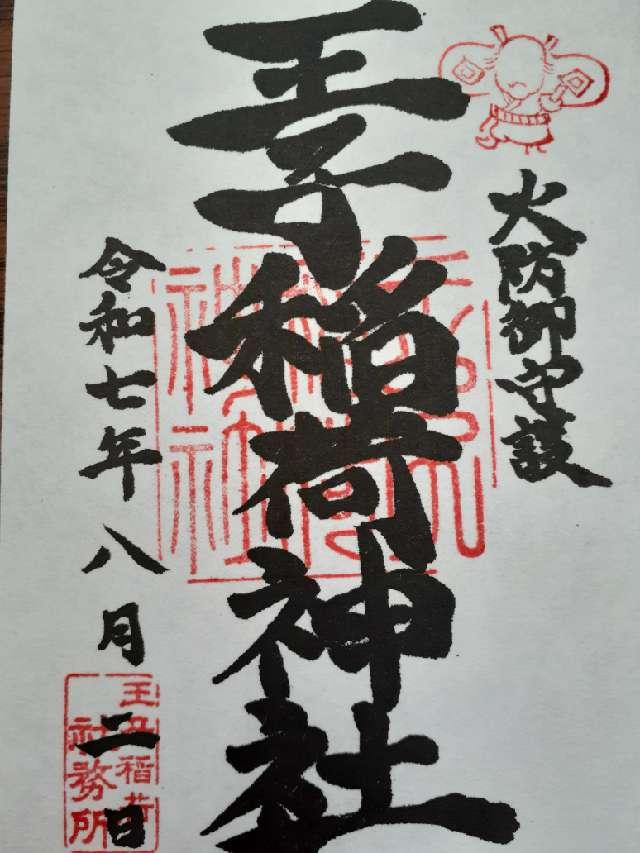 火防御守護
王子稲荷神社
令和七年八月二日
王子稲荷
社務所